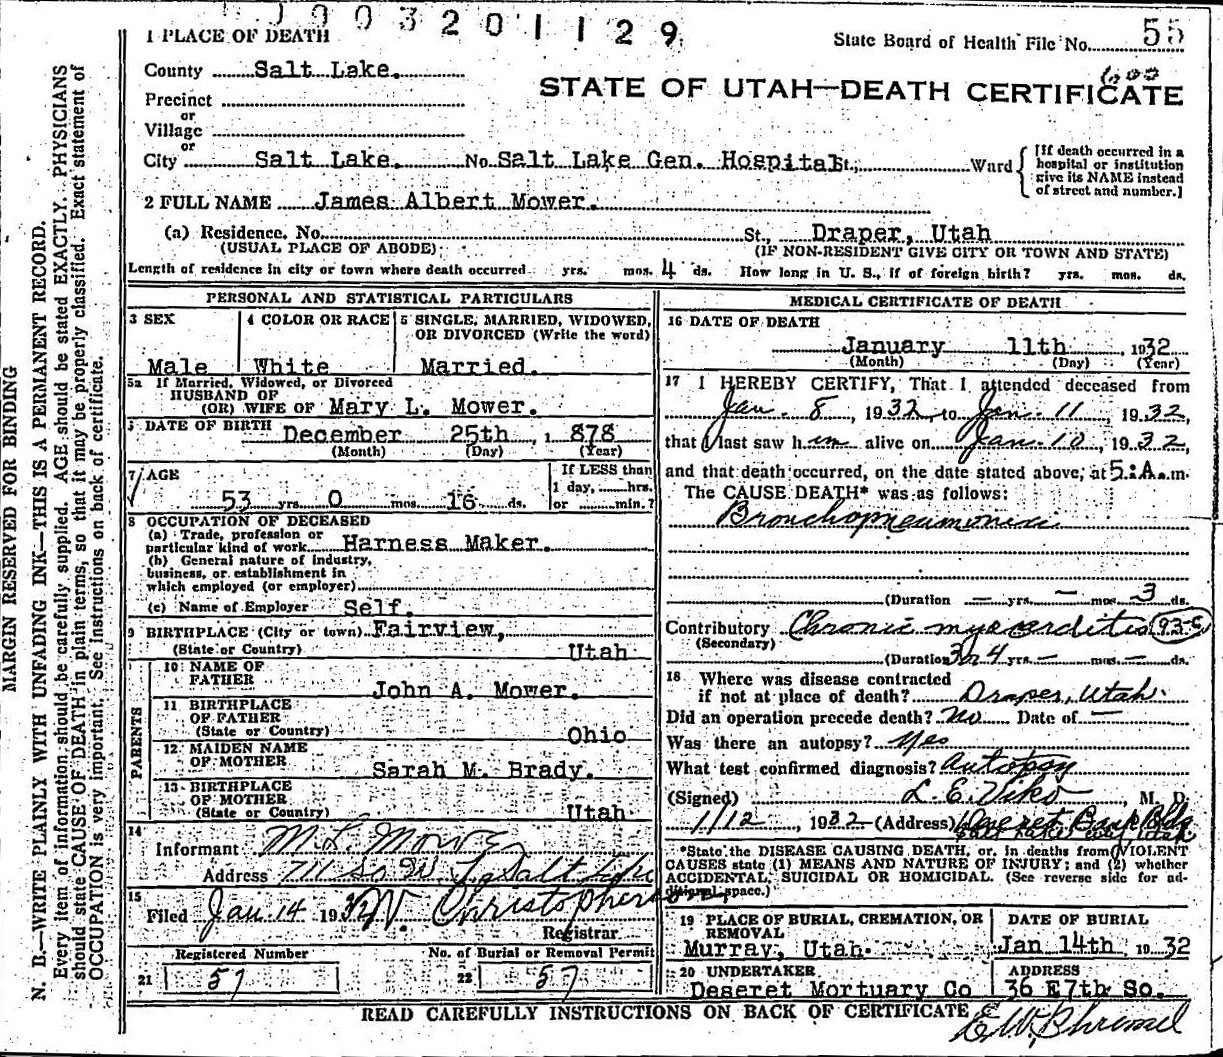 1003201129
1 PLACE OF DEATH
State Board of Health File No. 55
County Salt Lake.
STATE OF UTAH—DEATH CERTIFICATE
Precinct
or
Village
or
City Salt Lake. No. Salt Lake Gen. Hospital St., Ward
[If death occurred in a
hospital or institution
give its NAME instead
of street and number.]
2 FULL NAME James Albert Mower.
(a) Residence. No. St., Draper, Utah
(USUAL PLACE OF ABODE) (IF NON-RESIDENT GIVE CITY OR TOWN AND STATE)
Length of residence in city or town where death occurred yrs. mos. 4 ds. How long in U. S., if of foreign birth? yrs. mos. ds.
PERSONAL AND STATISTICAL PARTICULARS
3 SEX
Male
4 COLOR OR RACE
White
5 SINGLE, MARRIED, WIDOWED,
OR DIVORCED (Write the word)
Married.
5a If Married, Widowed, or Divorced
HUSBAND OF
(OR) WIFE OF Mary L. Mower.
DATE OF BIRTH December 25th, 1878
(Month) (Day) (Year)
7 AGE
53 yrs. 0 mos. 16 ds.
If LESS than
1 day, hrs.
or min.?
8 OCCUPATION OF DECEASED
(a) Trade, profession or
particular kind of work Harness Maker.
(b) General nature of industry,
business, or establishment in
which employed (or employer)
(c) Name of Employer Self.
9 BIRTHPLACE (City or town) Fairview,
(State or Country) Utah
PARENTS
10 NAME OF
FATHER John A. Mower.
11 BIRTHPLACE
OF FATHER
(State or Country) Ohio
12 MAIDEN NAME
OF MOTHER Sarah M. Brady.
13 BIRTHPLACE
OF MOTHER
(State or Country) Utah
14
Informant M L Mower
Address 711 So W
15
Filed Jan. 14 1932 Christopherson
Registrar
Registered Number
21 57
No. of Burial or Removal Permit
22 57
MEDICAL CERTIFICATE OF DEATH
16 DATE OF DEATH
January 11th, 1932
(Month) (Day) (Year)
17 I HEREBY CERTIFY, That I attended deceased from
Jan. 8, 1932 to Jan. 11, 1932,
that I last saw him alive on Jan. 10, 1932,
and that death occurred, on the date stated above, at 5:A.m.
The CAUSE DEATH* was as follows:
Bronchopneumonia
(Duration — yrs. — mos. 3 ds.
Contributory Chronic myocarditis 93-c
(Secondary)
(Duration 3 or 4 yrs. — mos. — ds.
18 Where was disease contracted
if not at place of death? Draper, Utah.
Did an operation precede death? No Date of —
Was there an autopsy? Yes
What test confirmed diagnosis? Autopsy
(Signed) L. E. Viko, M. D.
1/12, 1932 (Address) Deseret Bank Bldg
*State the DISEASE CAUSING DEATH, or, in deaths from VIOLENT
CAUSES state (1) MEANS AND NATURE OF INJURY; and (2) whether
ACCIDENTAL, SUICIDAL OR HOMICIDAL. (See reverse side for ad-
ditional space.)
19 PLACE OF BURIAL, CREMATION, OR
REMOVAL
Murray, Utah.
DATE OF BURIAL
Jan 14th 1932
20 UNDERTAKER
Deseret Mortuary Co
ADDRESS
36 E 7th So.
READ CAREFULLY INSTRUCTIONS ON BACK OF CERTIFICATE
MARGIN RESERVED FOR BINDING
N. B.—WRITE PLAINLY WITH UNFADING INK—THIS IS A PERMANENT RECORD.
Every item of information should be carefully supplied. AGE should be stated EXACTLY. PHYSICIANS
should state CAUSE OF DEATH in plain terms, so that it may be properly classified. Exact statement of
OCCUPATION is very important. See instructions on back of certificate.